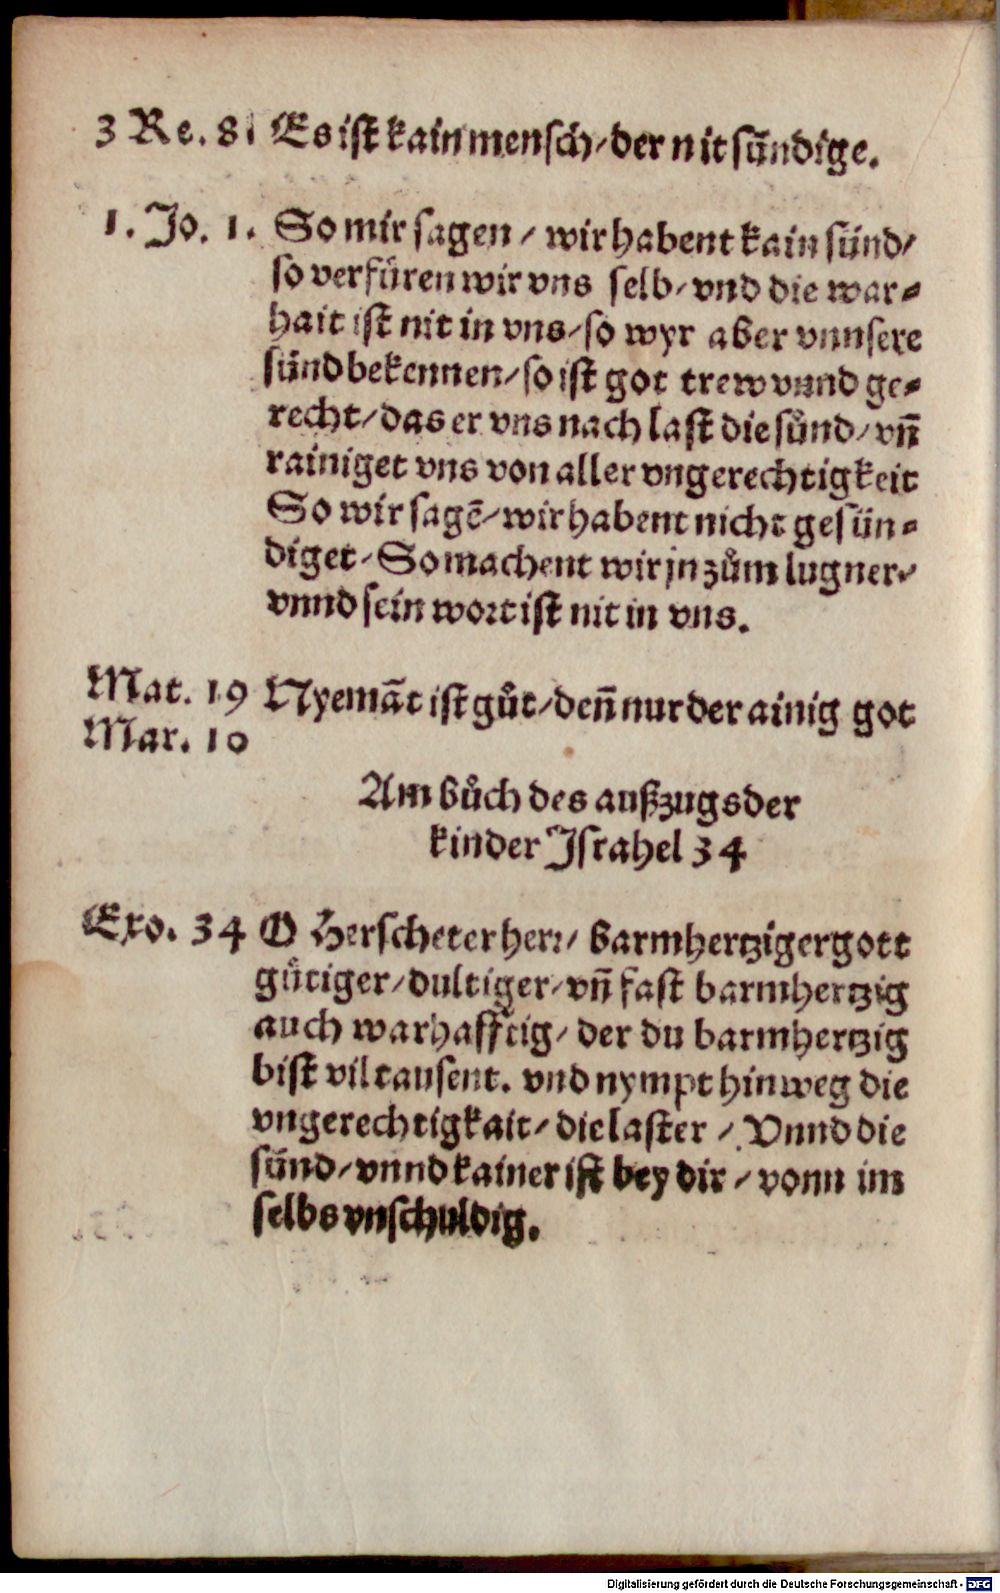 3 Re. 8. Es ist kain mensch/ der nit sündige.
1. Jo. 1. So mir sagen/ wir habent kain sünd/
so verfüren wir vns selb/ vnd die war-
hait ist nit in vns/ so wyr aber vnnsere
sünd bekennen/ so ist got trew vnnd ge-
recht/ das er vns nach last die sünd/ vñ
rainiget vns von aller vngerechtigkeit
So wir sagē/ wir habent nicht gesün-
diget/ So machent wir jn zům lugner/
vnnd sein wort ist nit in vns.
Mat. 19 Nyemãt ist gůt/ deñ nur der ainig got
Mar. 10
Am bůch des außzugs der
kinder Israhel 34
Exo. 34 O Herscheter herr/ barmhertziger gott
gütiger/ dultiger/ vñ fast barmhertzig
auch warhafftig/ der du barmhertzig
bist vil tausent. vnd nympt hinweg die
vngerechtigkait/ die laster/ Vnnd die
sünd/ vnnd kainer ist bey dir/ vonn im
selbs vnschuldig.
Digitalisierung gefördert durch die Deutsche Forschungsgemeinschaft - DFG